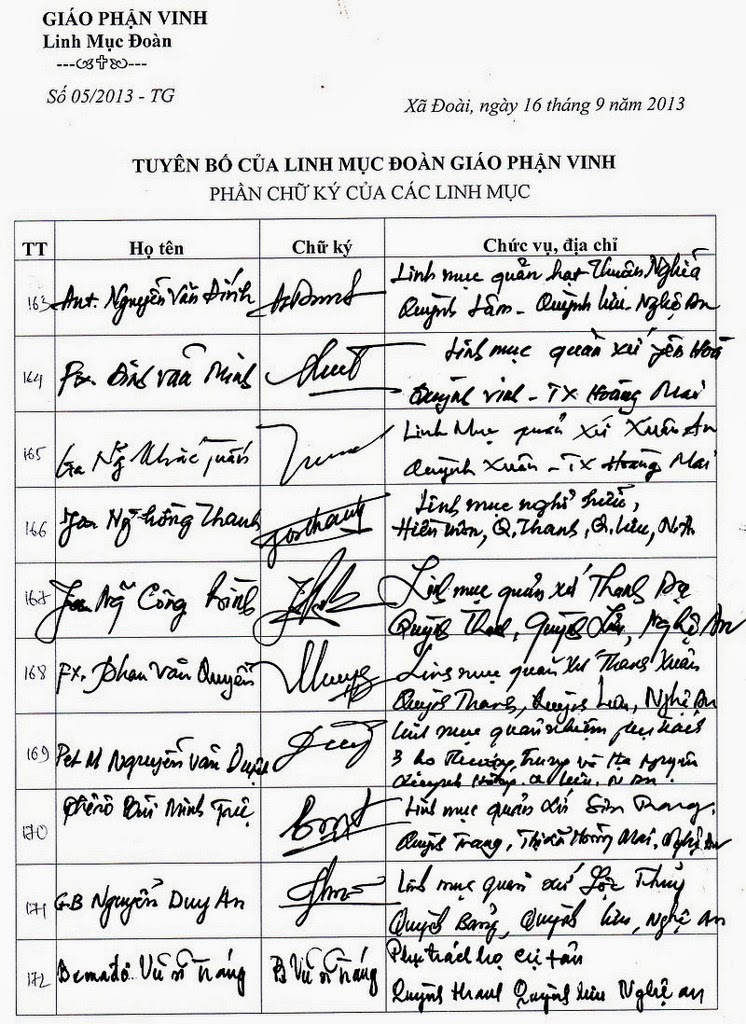 GIÁO PHẬN VINH
Linh Mục Đoàn
Số 05/2013 - TG
Xã Đoài, ngày 16 tháng 9 năm 2013
TUYÊN BỐ CỦA LINH MỤC ĐOÀN GIÁO PHẬN VINH
PHẦN CHỮ KÝ CỦA CÁC LINH MỤC
TT Họ tên Chữ ký Chức vụ, địa chỉ
163 Ant. Nguyễn Văn Đính Linh mục quản hạt Thuận Nghĩa
Quỳnh Lâm - Quỳnh Lưu - Nghệ An
164 Fx. Đinh Văn Minh Linh mục quản xứ Yên Hoà
Quỳnh Vinh - TX Hoàng Mai
165 Linh Mục quản xứ Xuân An
Quỳnh Xuân - TX Hoàng Mai
166 Joa Ng Hồng Thanh Linh mục nghỉ hưu,
Q. Thanh, Q. Lưu, N.A
167 Ng Công Bình Linh mục quản xứ Thanh Dạ
Quỳnh Thanh, Quỳnh Lưu, Nghệ An
168 FX. Phan Văn Quyền Linh mục quản xứ Thanh Xuân
Quỳnh Thanh, Quỳnh Lưu, Nghệ An
169 Pet M Nguyễn Văn Duyệt Linh mục quản nhiệm phụ trách
3 họ Thượng, Trung và Hạ Nguyên
Q. Lưu, N An.
170 Phêrô Bùi Minh Tuệ Linh mục quản xứ Sơn Trang.
Quỳnh Trang, Thị xã Hoàng Mai, Nghệ An
171 G.B Nguyễn Duy An Linh mục quản xứ Lộc Thủy
Quỳnh Bảng, Quỳnh Lưu, Nghệ An
172 Bernađô Vũ Sĩ Tráng B Vũ Sĩ Tráng Phụ trách họ cự tân
Quỳnh thanh Quỳnh lưu Nghệ an